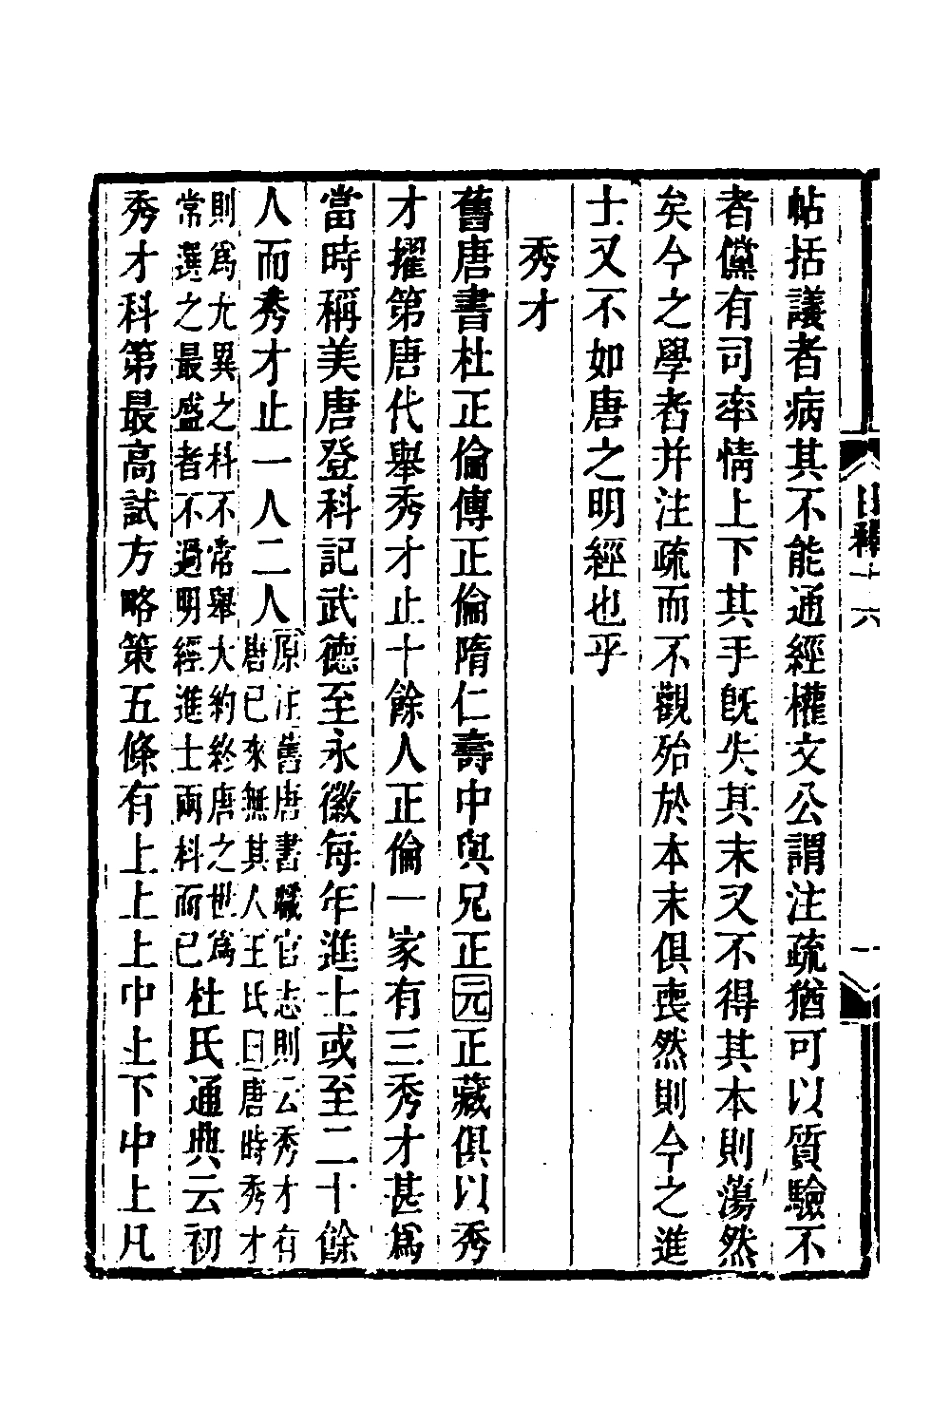 日釋十六
一
帖括議者病其不能通經權文公謂注疏猶可以質驗不
者儻有司率情上下其手旣失其末又不得其本則蕩然
矣今之學者并注疏而不觀殆於本末俱喪然則今之進
士又不如唐之明經也乎
秀才
舊唐書杜正倫傳正倫隋仁壽中與兄正元正藏俱以秀
才擢第唐代舉秀才止十餘人正倫一家有三秀才甚爲
當時稱美唐登科記武德至永徽每年進士或至二十餘
人而秀才止一人二人
原注舊唐書職官志則云秀才有
唐已來無其人王氏曰唐時秀才
則爲尤異之科不常舉大約終唐之世爲
常選之最盛者不過明經進士兩科而已
杜氏通典云初
秀才科第最高試方略策五條有上上上中上下中上凡